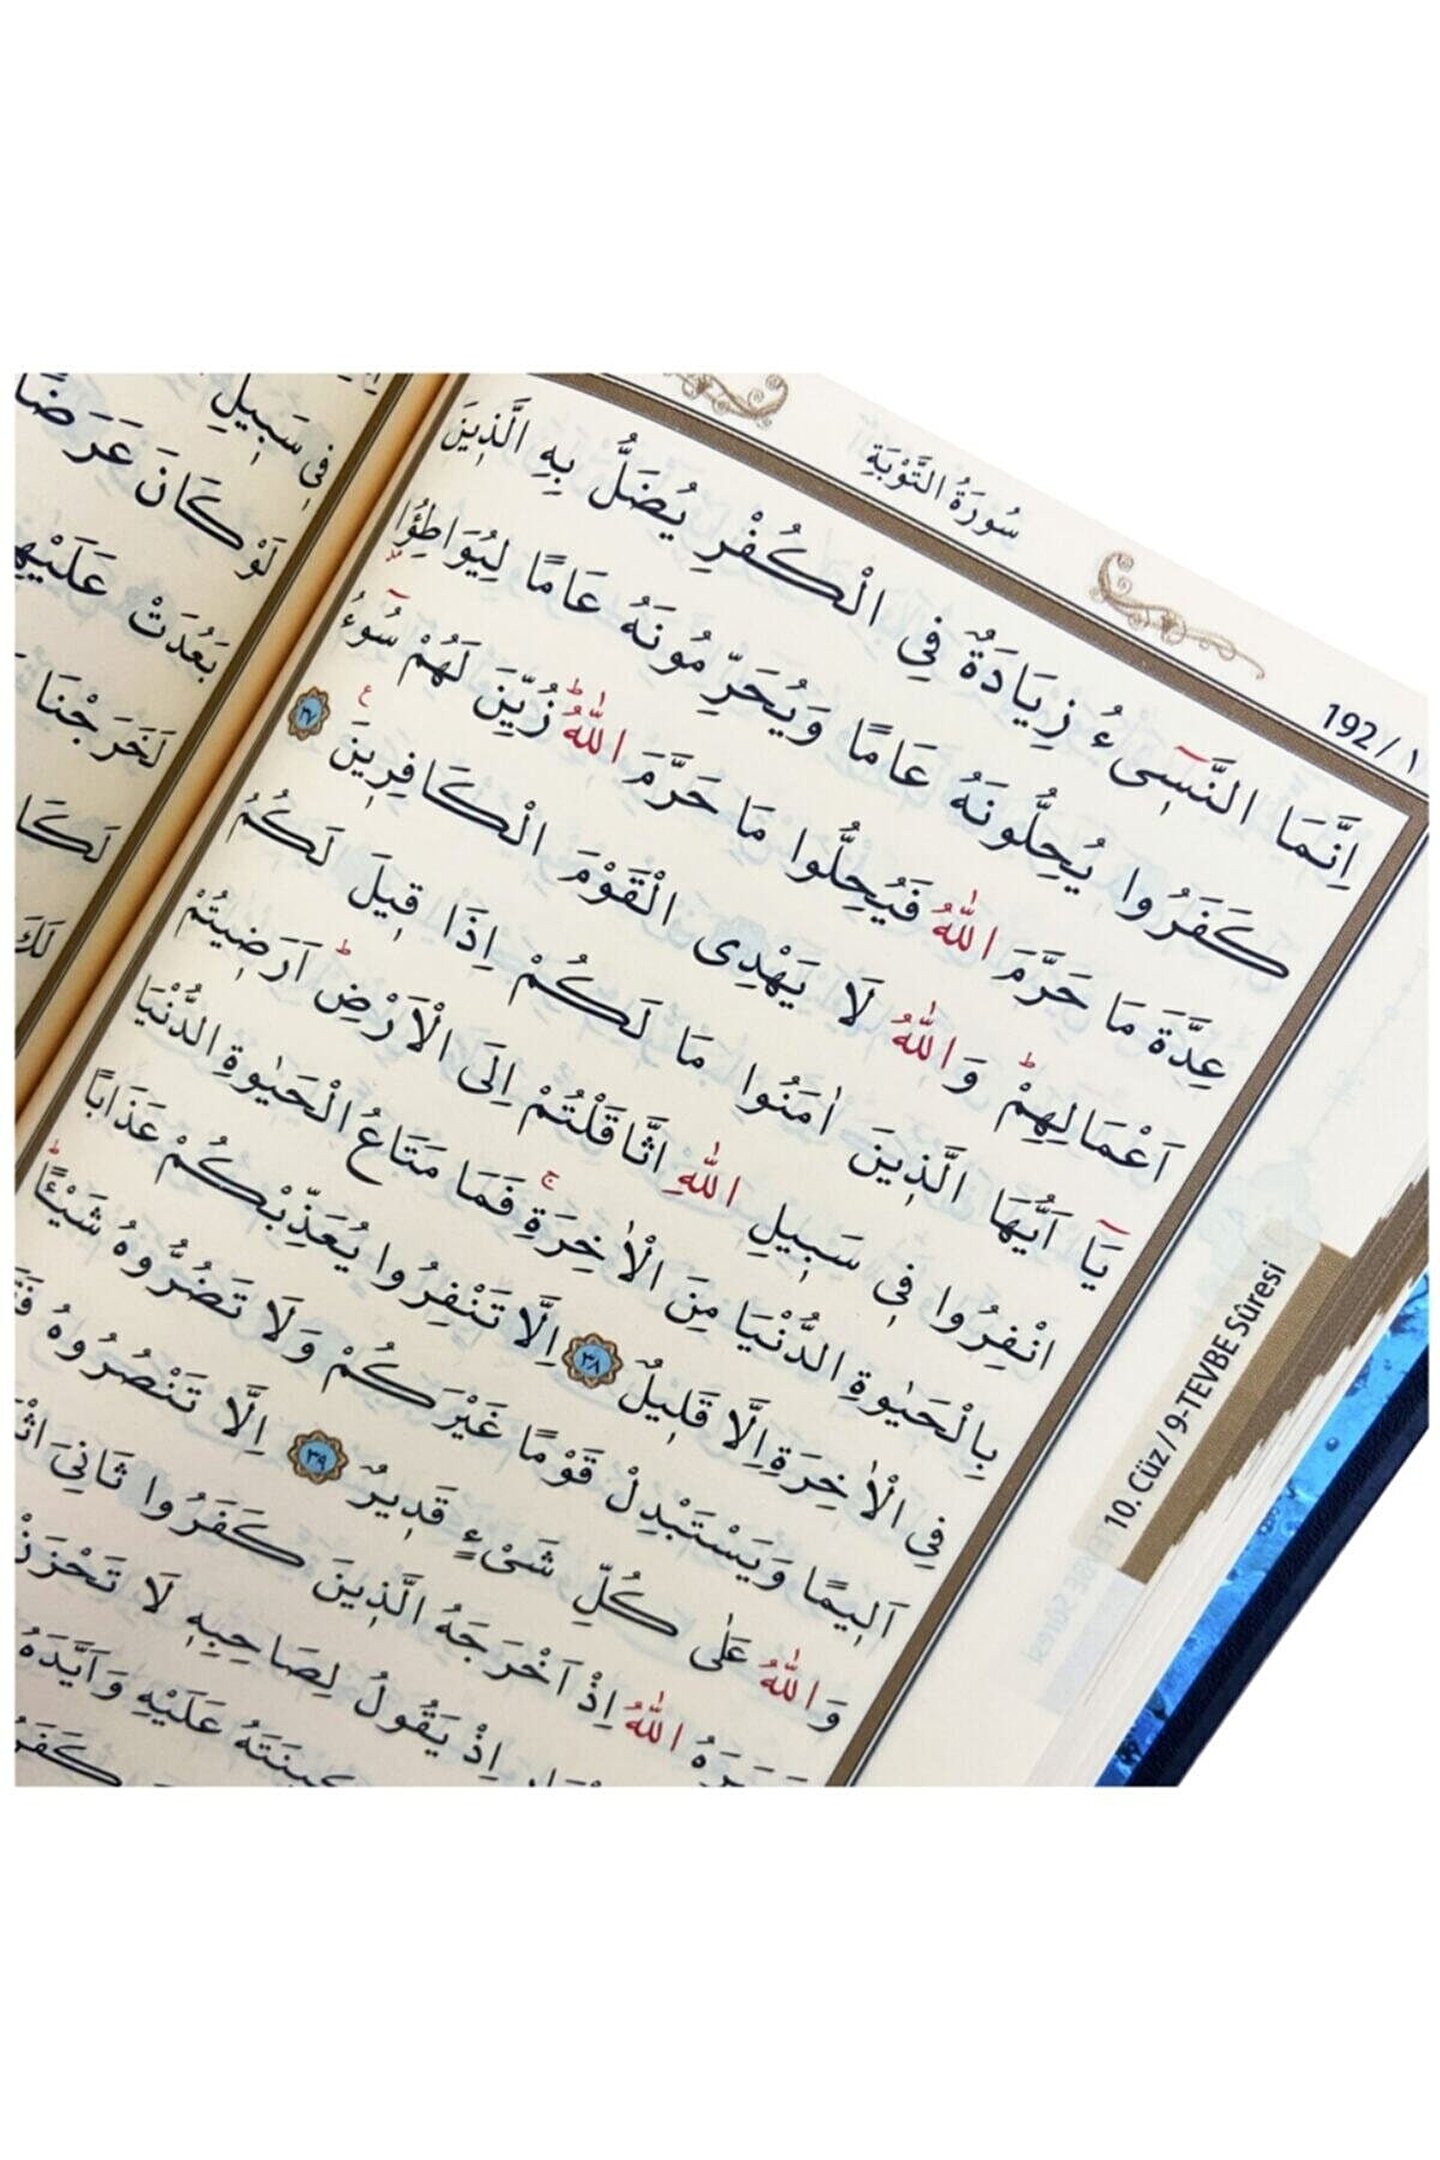 192/١
سُورَةُ التَّوْبَةِ
اِنَّمَا النَّسٖٓىءُ زِيَادَةٌ فِى الْكُفْرِ يُضَلُّ بِهِ الَّذٖينَ
كَفَرُوا يُحِلُّونَهُ عَامًا وَيُحَرِّمُونَهُ عَامًا لِيُوَاطِؤُا
عِدَّةَ مَا حَرَّمَ اللّٰهُ فَيُحِلُّوا مَا حَرَّمَ اللّٰهُؕ زُيِّنَ لَهُمْ سُٓوءُ
اَعْمَالِهِمْؕ وَاللّٰهُ لَا يَهْدِى الْقَوْمَ الْكَافِرٖينَ ٣٧
يَٓا اَيُّهَا الَّذٖينَ اٰمَنُوا مَا لَكُمْ اِذَا قٖيلَ لَكُمُ
انْفِرُوا فٖى سَبٖيلِ اللّٰهِ اثَّاقَلْتُمْ اِلَى الْاَرْضِؕ اَرَضٖيتُمْ
بِالْحَيٰوةِ الدُّنْيَا مِنَ الْاٰخِرَةِۚ فَمَا مَتَاعُ الْحَيٰوةِ الدُّنْيَا
فِى الْاٰخِرَةِ اِلَّا قَلٖيلٌ ٣٨ اِلَّا تَنْفِرُوا يُعَذِّبْكُمْ عَذَابًا
اَلٖيمًا وَيَسْتَبْدِلْ قَوْمًا غَيْرَكُمْ وَلَا تَضُرُّوهُ شَيْـًٔاؕ
وَاللّٰهُ عَلٰى كُلِّ شَىْءٍ قَدٖيرٌ ٣٩ اِلَّا تَنْصُرُوهُ
اللّٰهُ اِذْ اَخْرَجَهُ الَّذٖينَ كَفَرُوا ثَانِىَ
اِذْ يَقُولُ لِصَاحِبِهٖ لَا تَحْزَنْ
عَلَيْهِ وَاَيَّدَهُ
10. Cüz / 9-TEVBE Sûresi
فٖى سَبٖيلِ
لَوْ كَانَ عَرَضًا
بَعُدَتْ
لَخَرَجْنَا